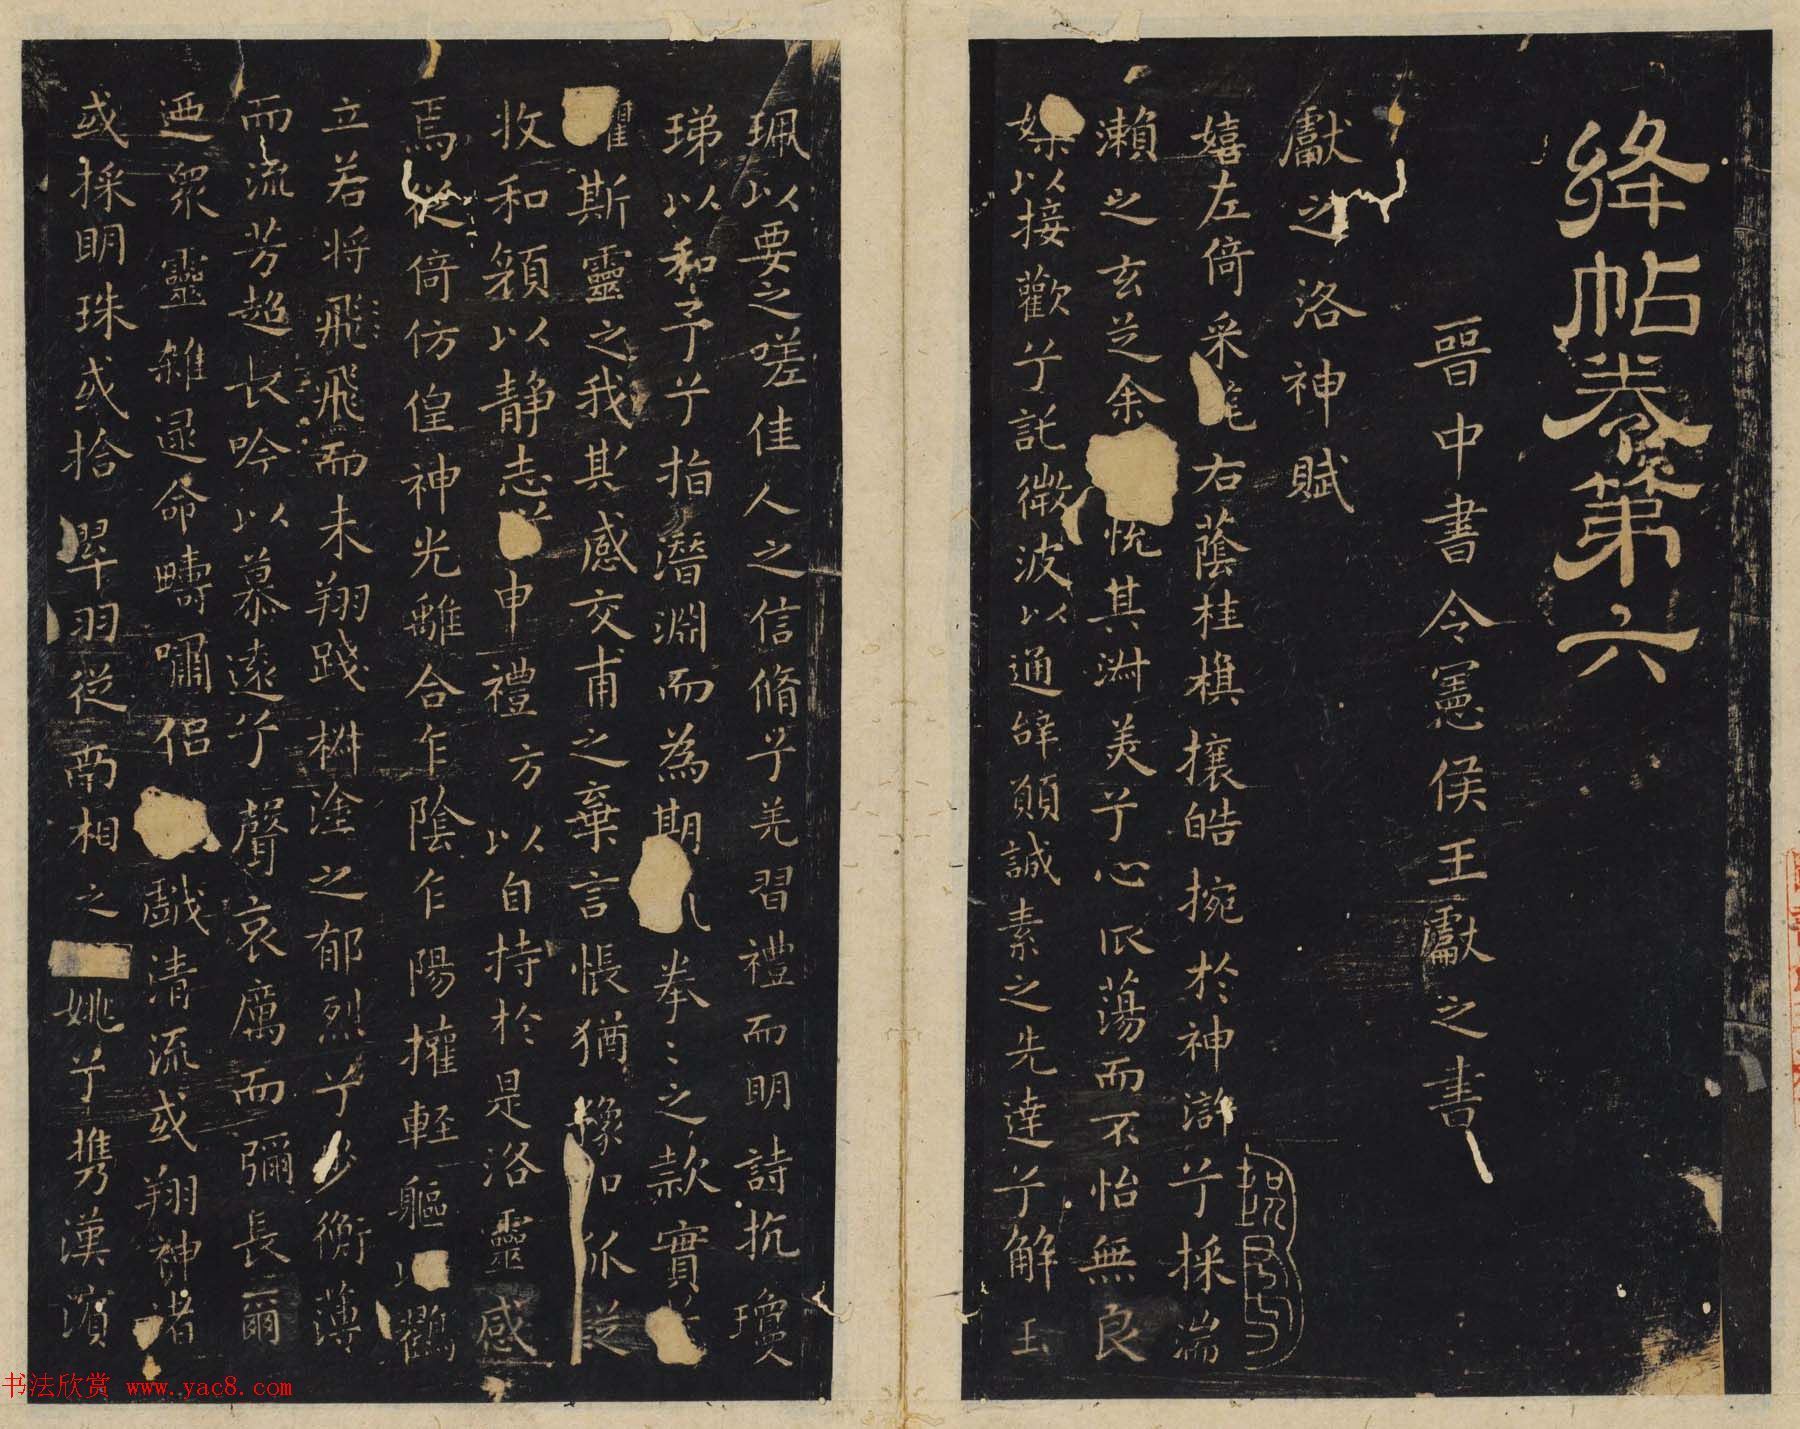 絳帖卷第六
晉中書令憲侯王獻之書
獻之洛神賦
嬉左倚采旄右蔭桂樴攘皓捥於神滸兮採湍
瀨之玄芝余悅其淋美兮心㕆蕩而不怡無良
媒以接歡兮託微波以通辭願誠素之先達兮解玉
珮以要之嗟佳人之信脩兮羌習禮而明詩抗瓊
珶以和予兮指潛淵而為期拳〻之款實
斯靈之我其感交甫之棄言悵猶豫
收和顏以靜志申禮方以自持於是洛靈感
焉徙倚仿偟神光離合乍陰乍陽擢輕軀以鸖
立若將飛飛而未翔踐椒塗之郁烈兮步衡薄
而流芳超長吟以慕遠兮聲哀厲而彌長爾
迺眾靈雜遝命疇嘯侶戲清流或翔神渚
或採明珠或拾翠羽從南相之姚兮攜漢濱
书法欣赏 www.yac8.com